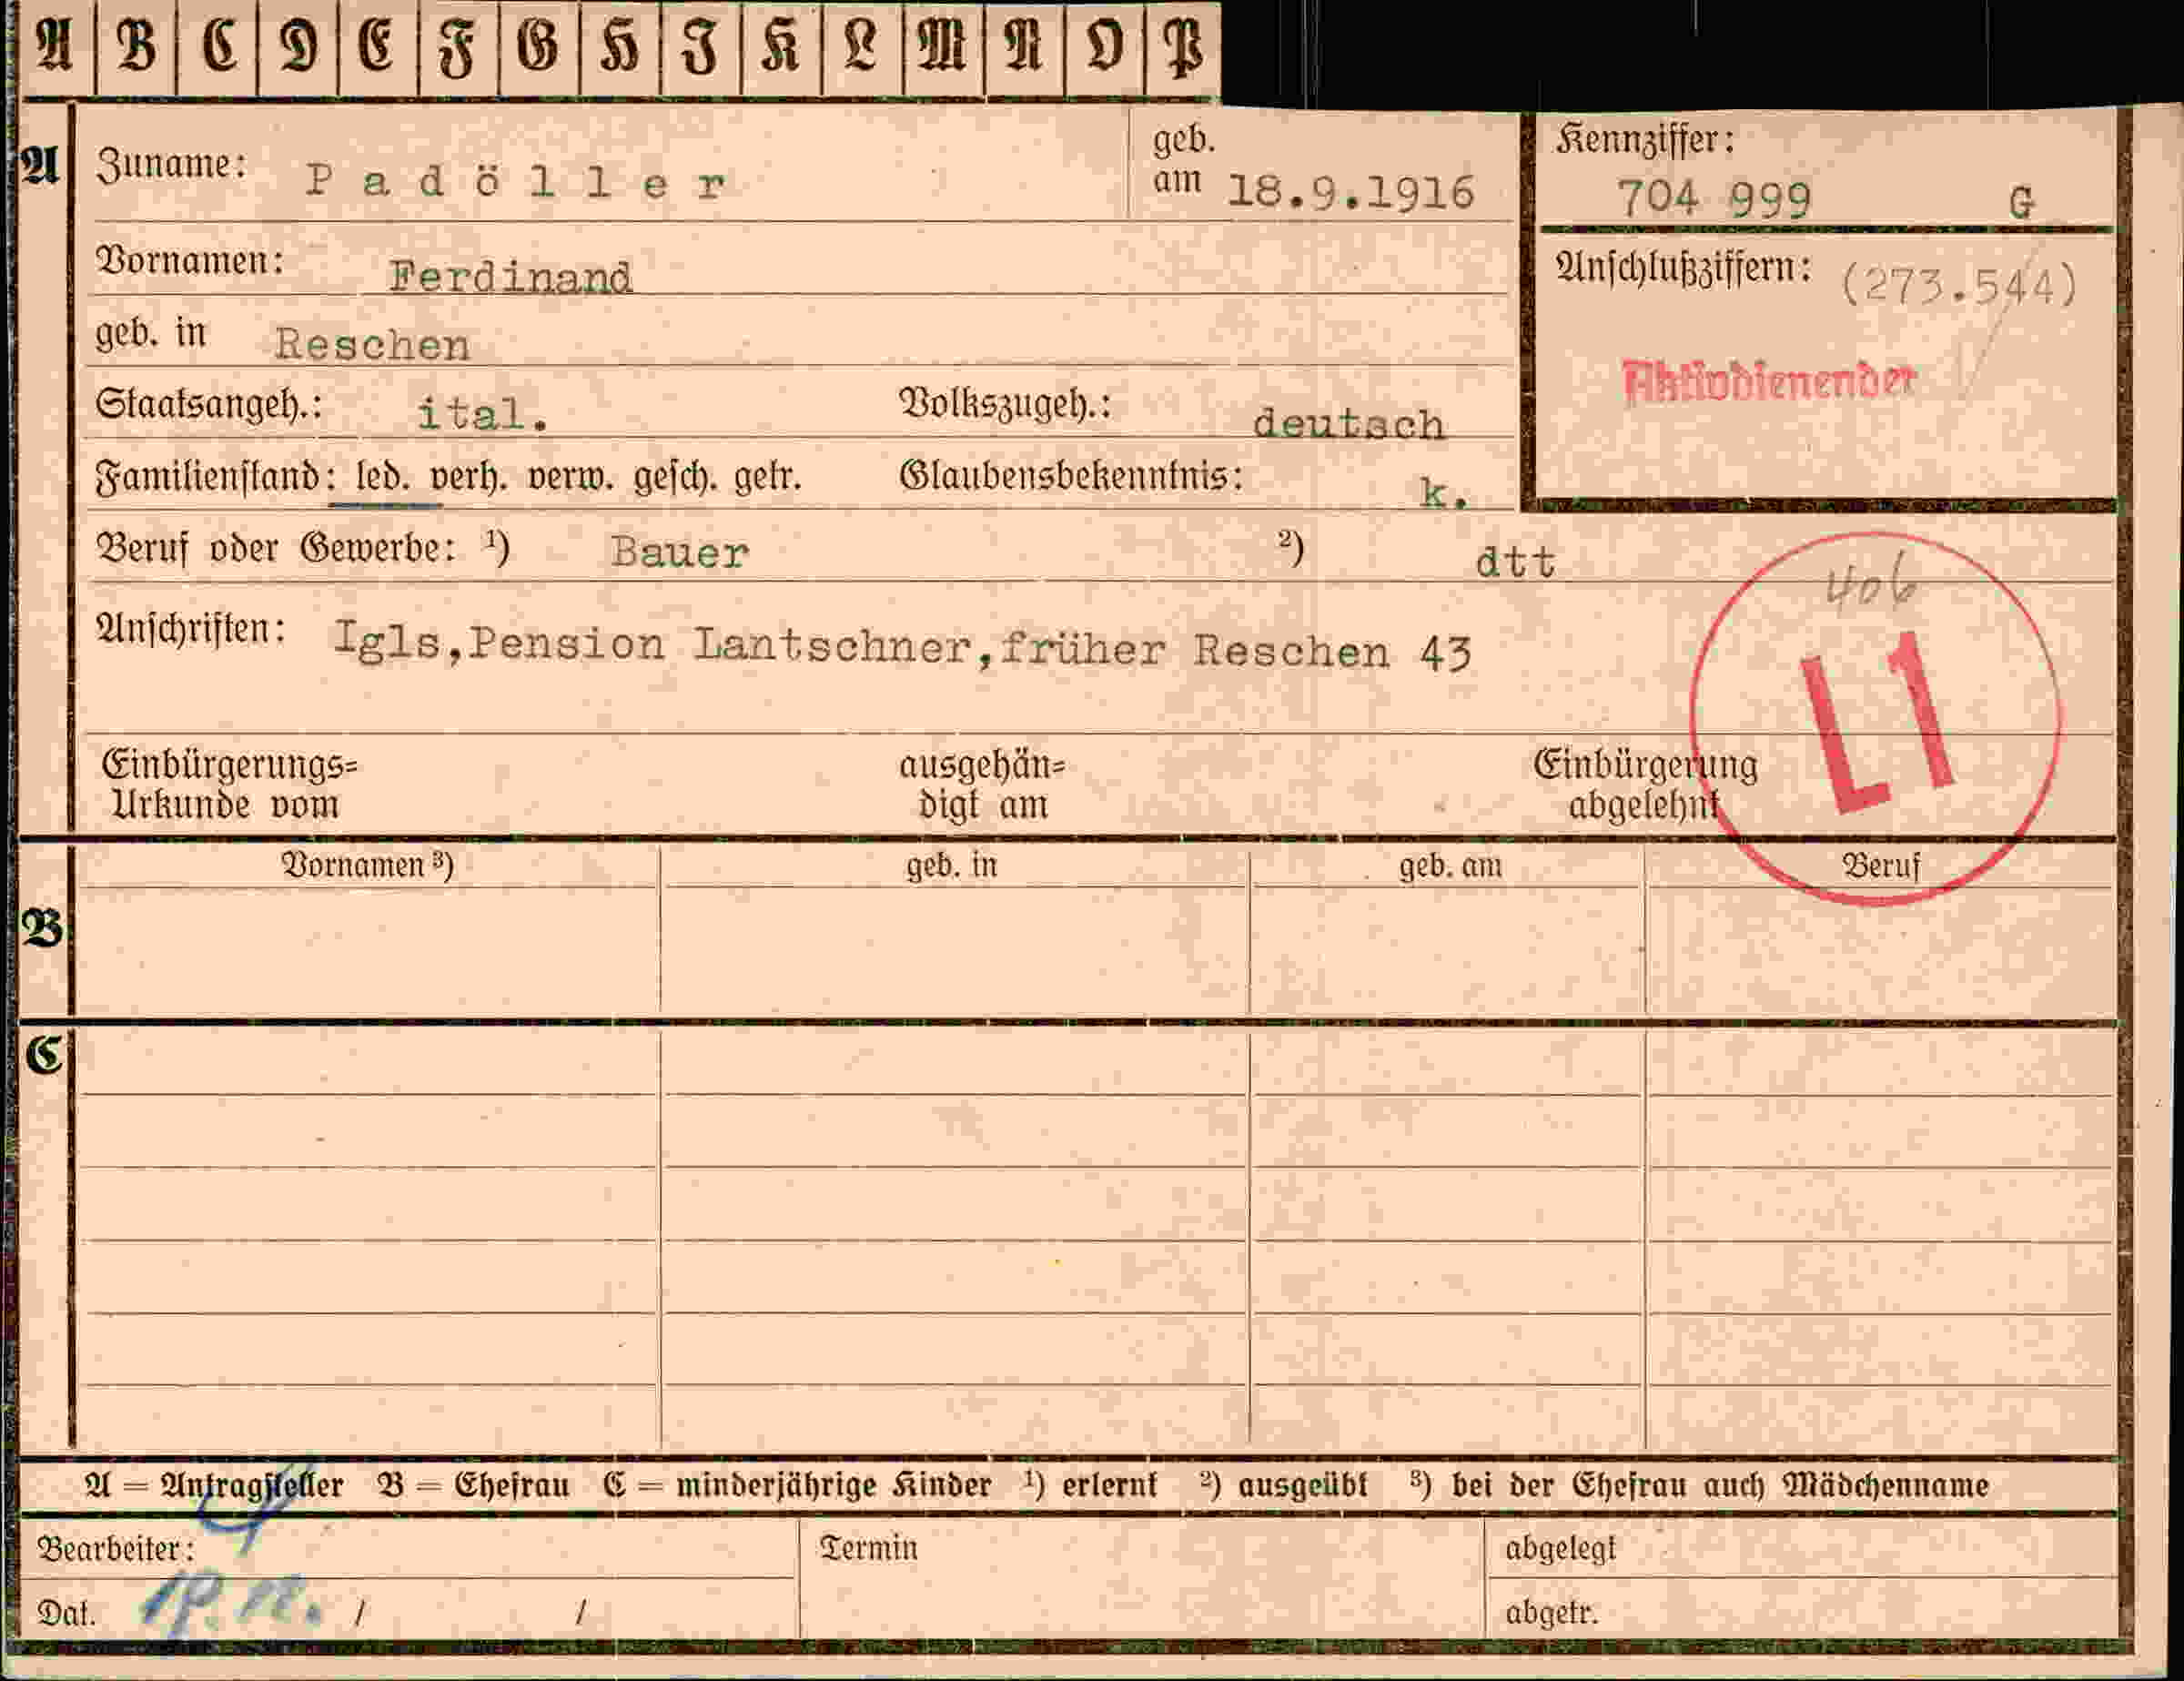 A B C D E F G H I K L M N O P
A
Zuname: Padöller
geb. am 18.9.1916
Kennziffer: 704 999 G
Vornamen: Ferdinand
Anschlußziffern: (273.544)
geb. in Reschen
Aktivdienender
Staatsangeh.: ital. Volkszugeh.: deutsch
Familienstand: led. verh. verw. gesch. getr. Glaubensbekenntnis: k.
Beruf oder Gewerbe: ¹) Bauer ²) dtt
406
L1
Anschriften: Igls,Pension Lantschner,früher Reschen 43
Einbürgerungs=
Urkunde vom
ausgehän=
digt am
Einbürgerung
abgelehnt
B
Vornamen ³) geb. in geb. am Beruf
C
A = Antragsteller B = Ehefrau C = minderjährige Kinder ¹) erlernt ²) ausgeübt ³) bei der Ehefrau auch Mädchenname
Bearbeiter: Termin abgelegt
Dat. / / abgetr.